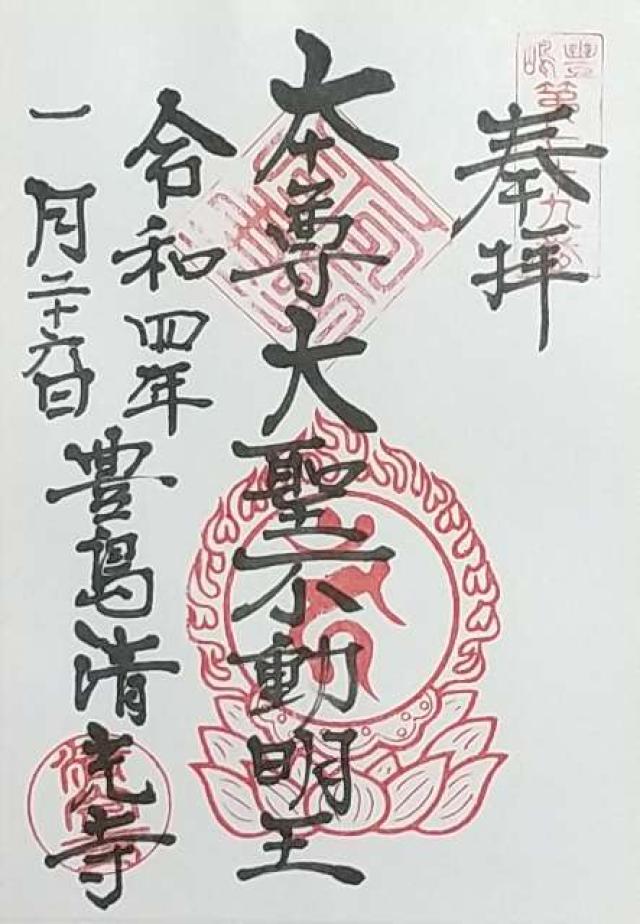 奉拝
本尊大聖不動明王
令和四年
一月二十六日
豊島清光寺